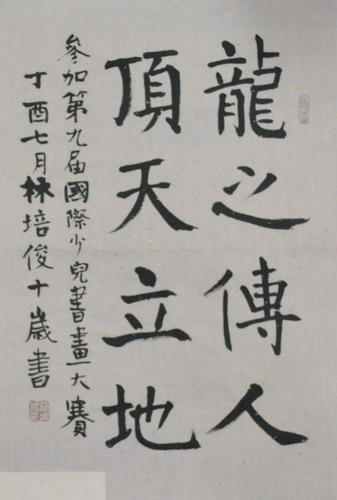 龍之傳人
頂天立地
參加第九屆國際少兒書畫大賽
丁酉七月林培俊十歲書